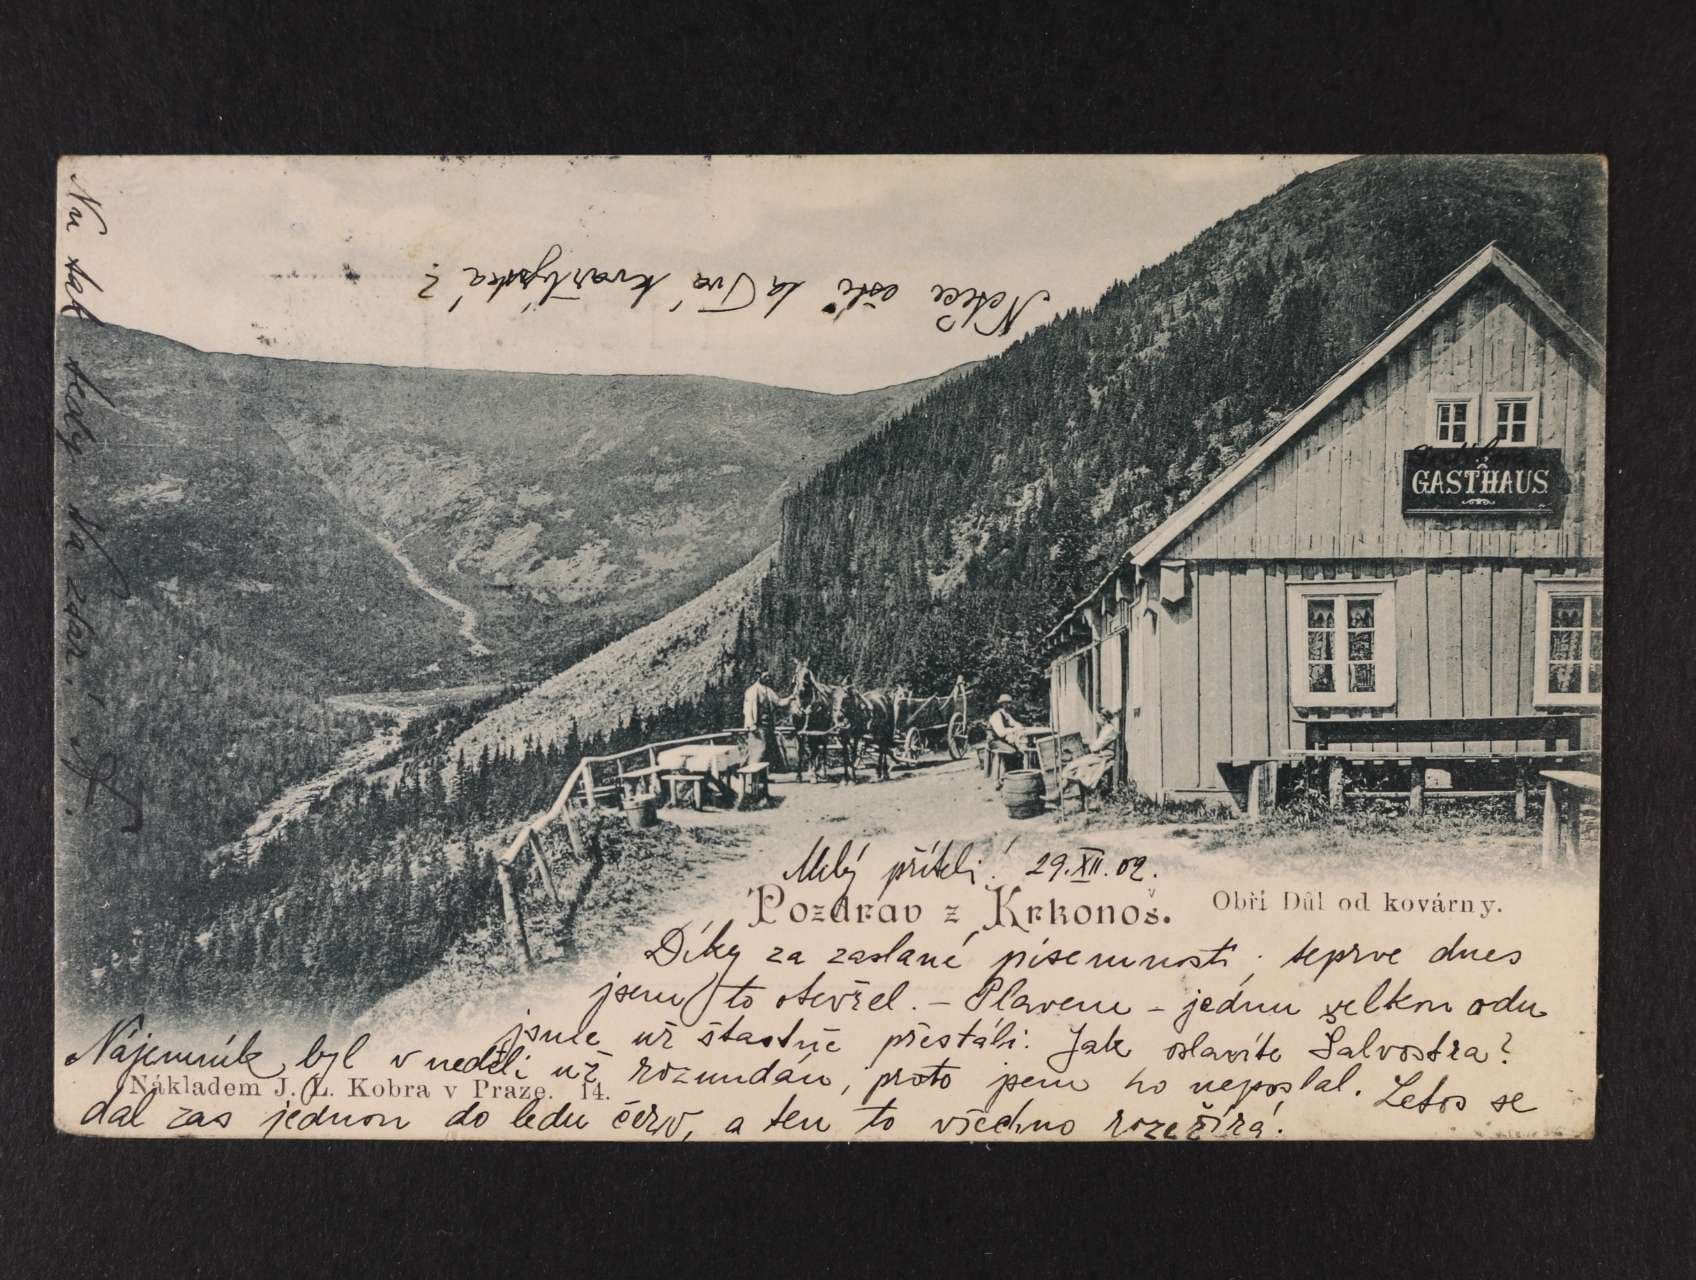 GASTHAUS
Milý příteli! 29.XII.02.
Pozdrav z Krkonoš.
Obří Důl od kovárny.
Díky za zaslané písemnosti; teprve dnes
jsem to otevřel. – Plavem – jednu velkou vodu
jsme už šťastně přestáli. Jak oslavíte Šylvestra?
Nájemník byl v neděli už rozundán, proto jsem ho neposlal. Letos se
Nákladem J. L. Kobra v Praze. 14.
dal zas jednou do ledu červ, a ten to všechno rozežírá!
Nu tak tedy Na zdar!
Netečе ešče ta Tvá